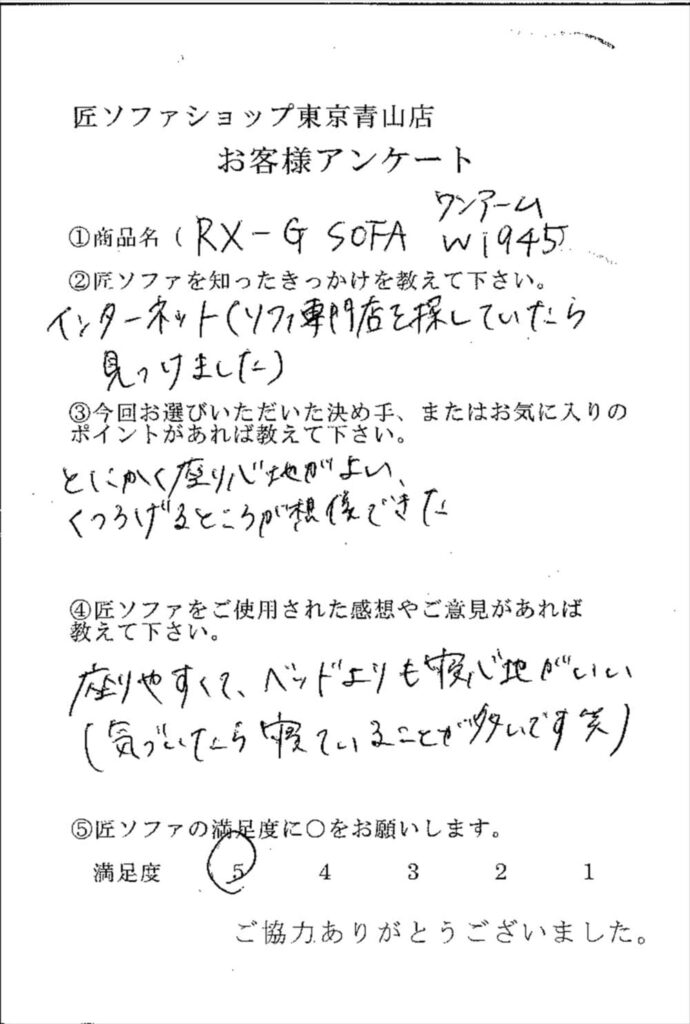 匠ソファショップ東京青山店
お客様アンケート
ワンアーム
①商品名( RX-G SOFA Wi945)
②匠ソファを知ったきっかけを教えて下さい。
インターネット(ソファ専門店を探していたら
見つけました)
③今回お選びいただいた決め手、またはお気に入りの
ポイントがあれば教えて下さい。
とにかく座り心地がよい、
くつろげるところが想像できた
④匠ソファをご使用された感想やご意見があれば
教えて下さい。
座りやすくて、ベッドよりも寝心地がいい
(気づいたら寝ていることが多いです笑)
⑤匠ソファの満足度に〇をお願いします。
満足度 5 4 3 2 1
ご協力ありがとうございました。